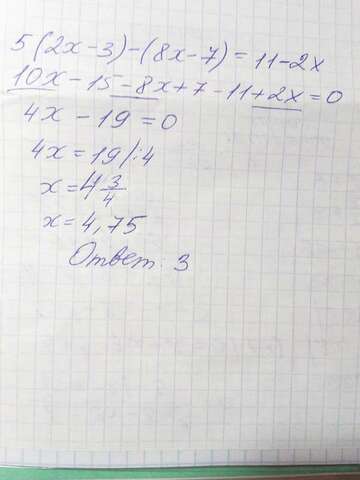 5(2x-3)-(8x-7)=11-2x
10x-15-8x+7-11+2x=0
4x-19=0
4x=19/:4
x=4 3/4
x=4,75
Ответ: 3